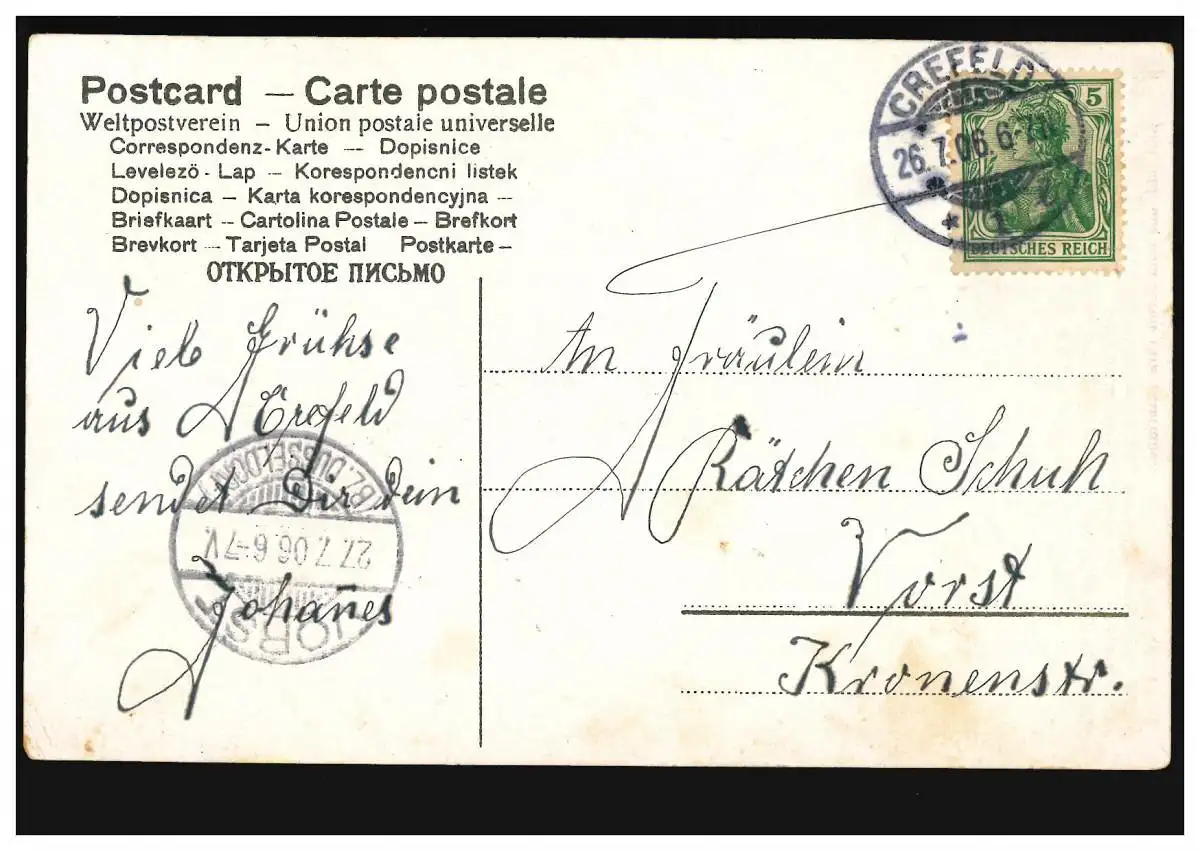 Postcard — Carte postale
Weltpostverein – Union postale universelle
Correspondenz-Karte — Dopisnice
Levelezö-Lap – Korespondencni listek
Dopisnica – Karta korespondencyjna –
Briefkaart – Cartolina Postale – Brefkort
Brevkort — Tarjeta Postal Postkarte –
ОТКРЫТОЕ ПИСЬМО
CREFELD
26.7.06. 6-7N
* 1
5
DEUTSCHES REICH
Viele Grühse
aus Crefeld
sendet Dir dein
Johan̄es
VORST
27.7.06 6-7V.
BZ. DÜSSELDORF
An Fräulein
Kätchen Schuh
Vorst
Kronenstr.